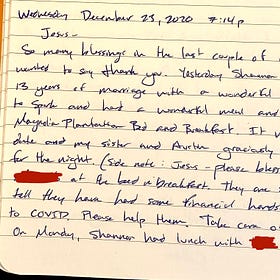 Wednesday December 23, 2020 7:14p
Jesus-
So many blessings in the last couple of
wanted to say thank you. Yesterday Shannon
13 years of marriage with a wonderful
to Spark and had a wonderful meal and
Magnolia Plantation Bed and Breakfast. It w
date and my sister and Austin graciously
for the night. (side note: Jesus - please bless
at the bed n breakfast. They are
tell they have had some financial hards
to COVID. Please help them. Take care o
On Monday, Shannon had lunch with